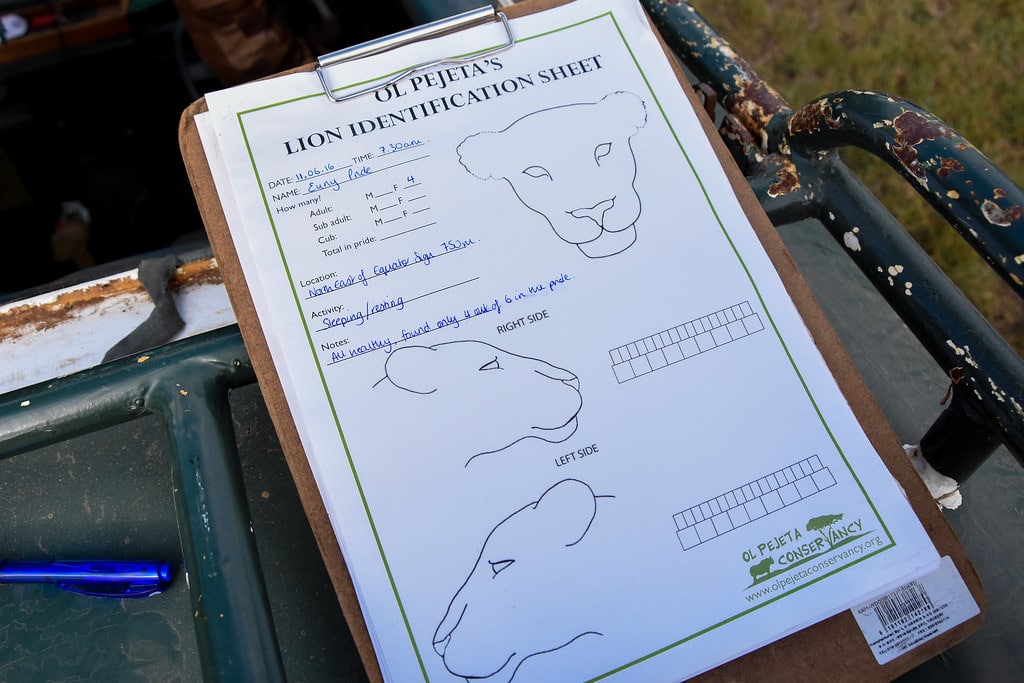 OL PEJETA'S
LION IDENTIFICATION SHEET
DATE: 11.06.16 TIME: 7.30am.
NAME: Euny Pride
How many?
Adult: M F 4
Sub adult: M F
Cub: M F
Total in pride:
Location:
North East of Equator Sign 750m.
Activity:
Sleeping/resting
Notes:
All healthy, found only 4 out of 6 in the pride.
RIGHT SIDE
LEFT SIDE
OL PEJETA
CONSERVANCY
www.olpejetaconservancy.org